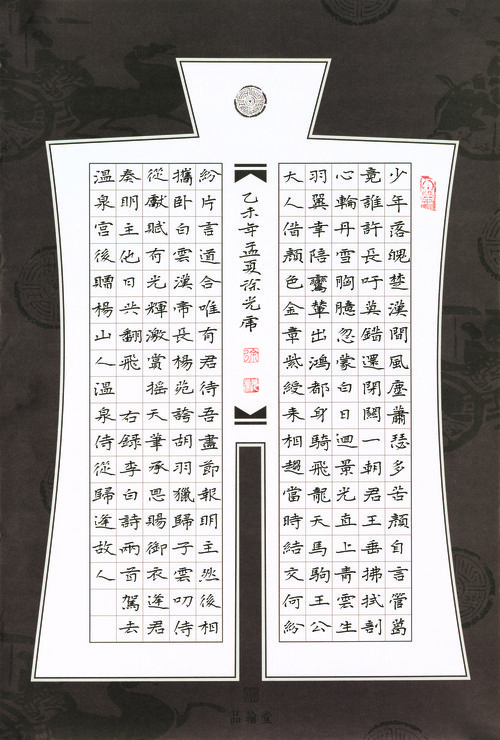 少年落魄楚漢間風塵蕭瑟多苦顏自言管葛
竟誰許長吁莫錯還閉關一朝君王垂拂拭剖
心輪丹雪胸臆忽蒙白日迴景光直上青雲生
羽翼幸陪鸞輦出鴻都身騎飛龍天馬駒王公
大人借顏色金章紫綬來相趨當時結交何紛
乙未年孟夏徐光
紛片言道合唯有君待吾盡節報明主然後相
攜臥白雲漢帝長楊苑誇胡羽獵歸子雲叨侍
從獻賦有光輝激賞搖天筆承恩賜御衣逢君
奏明主他日共翻飛 右錄李白詩兩首駕去
溫泉宮後贈楊山人溫泉侍從歸逢故人
品翰堂